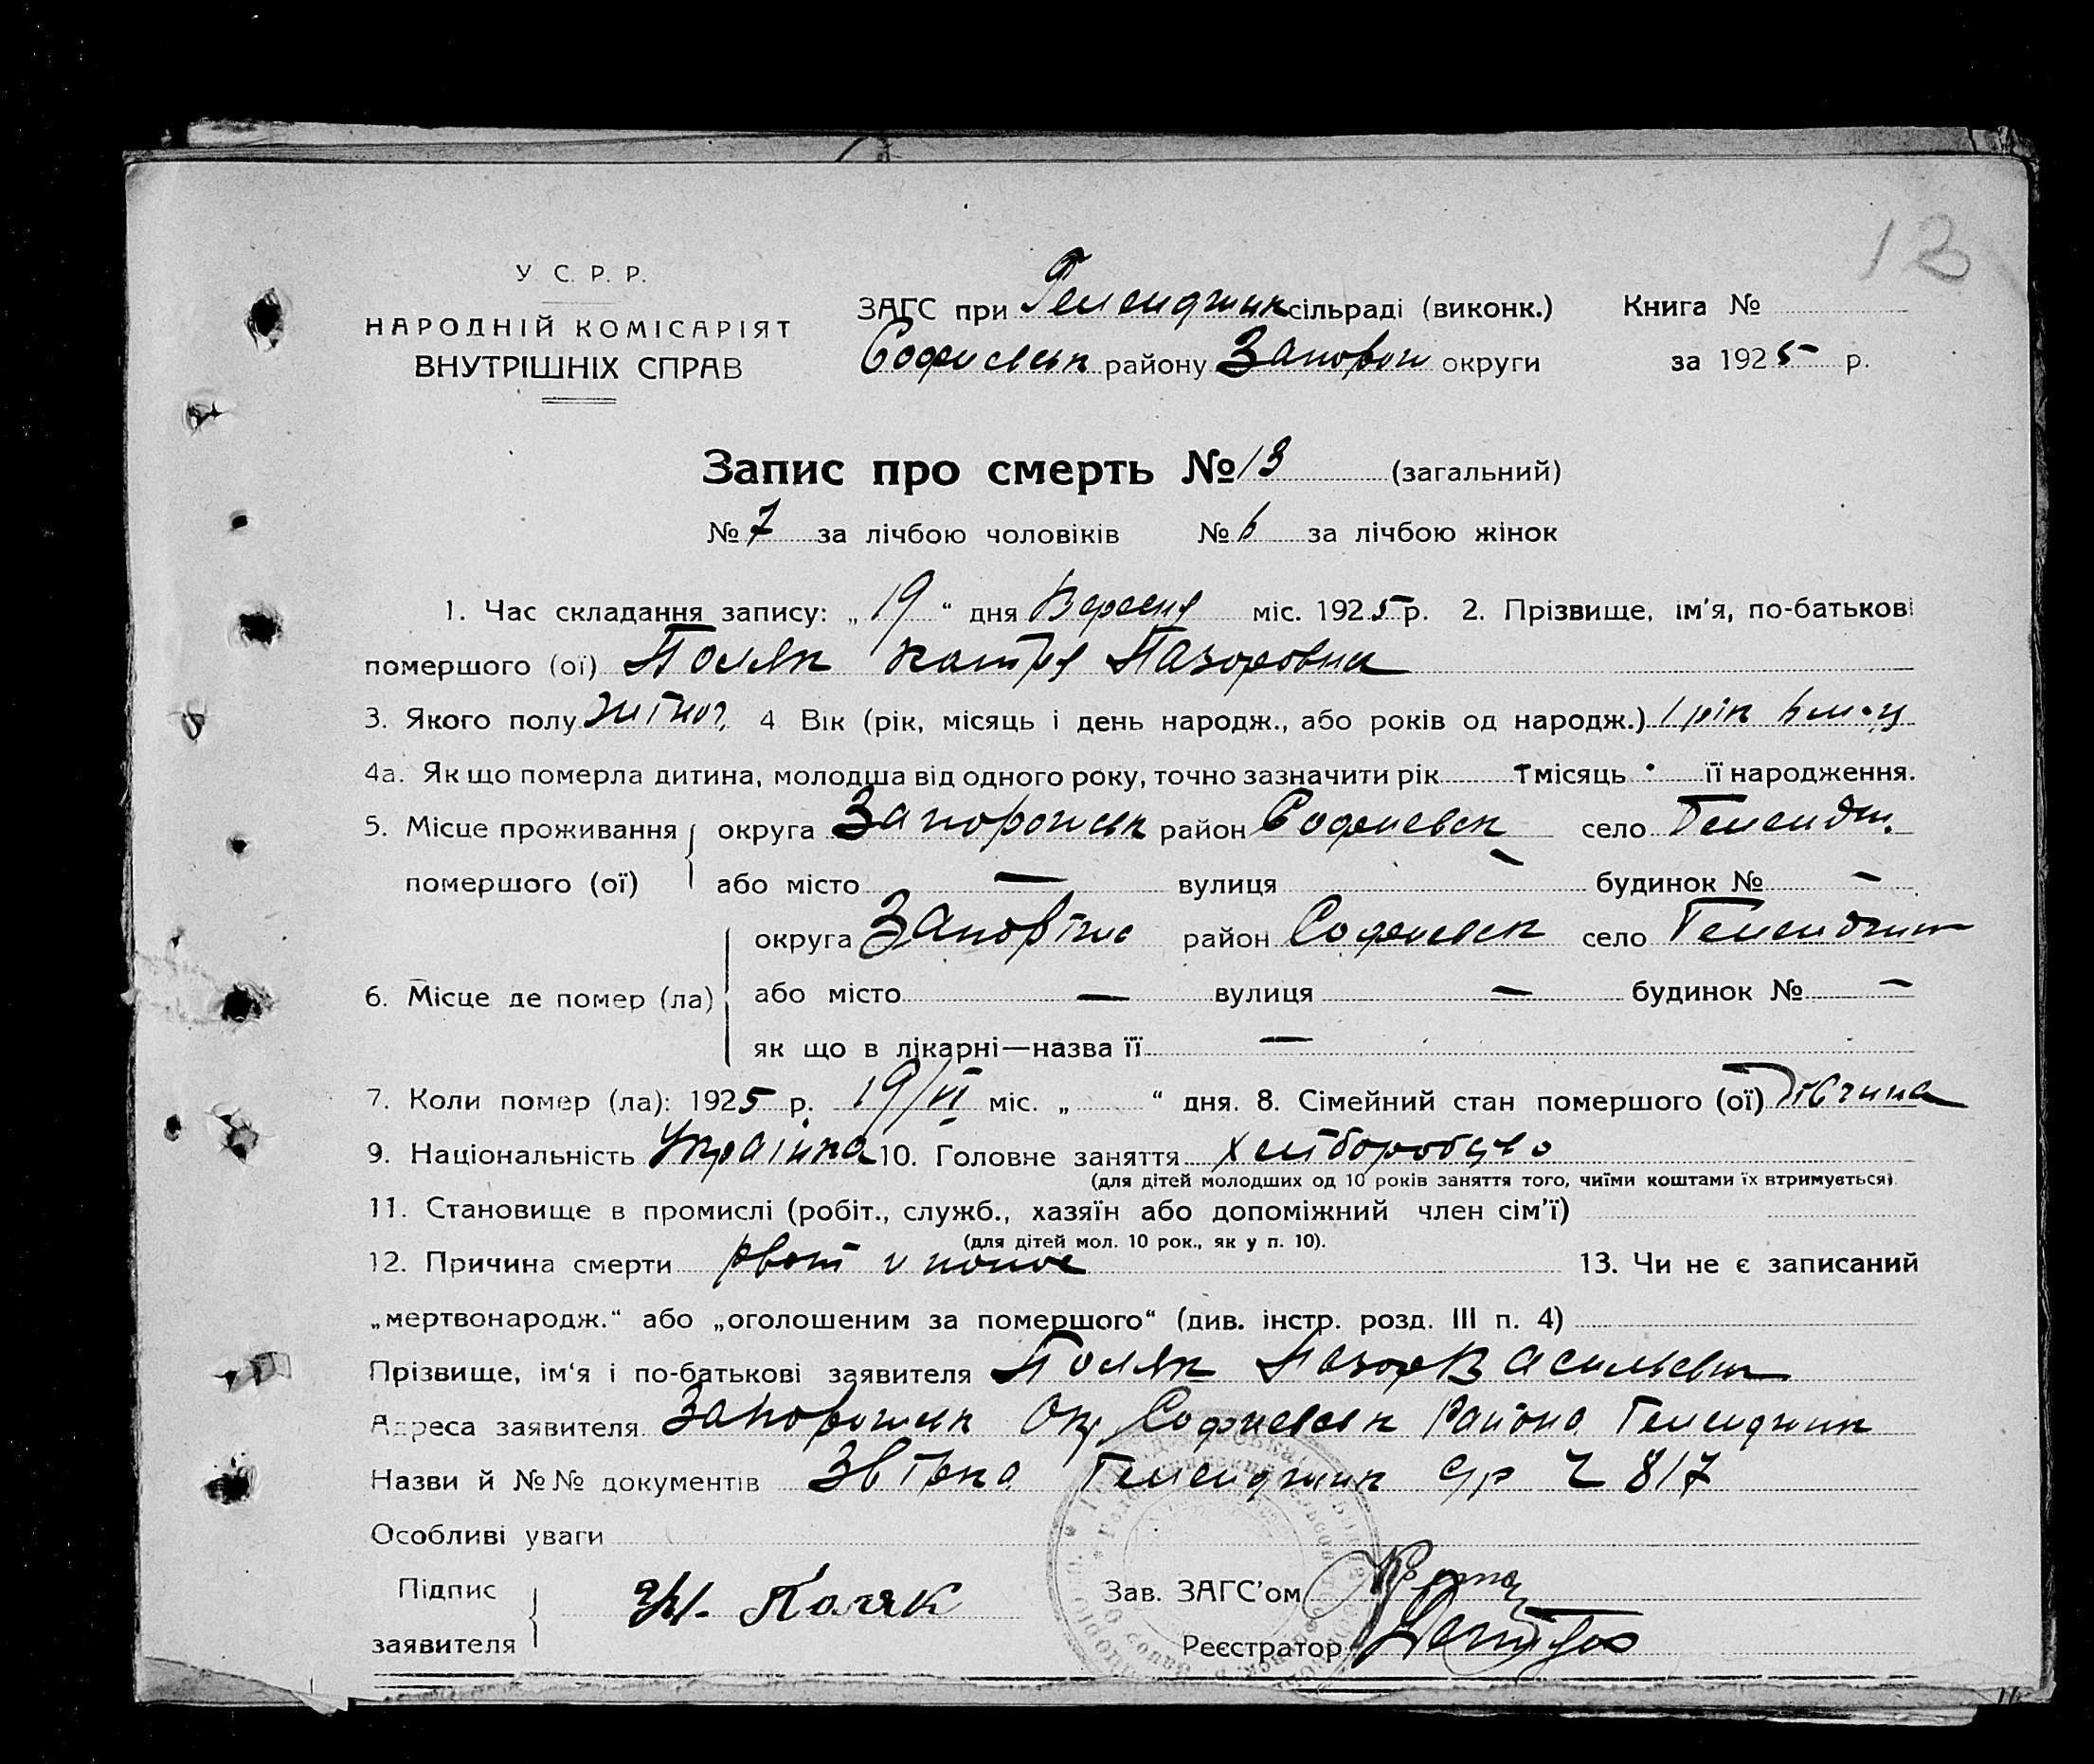 12
У. С. Р. Р.
НАРОДНІЙ КОМІСАРІЯТ
ВНУТРІШНІХ СПРАВ
ЗАГС при Геленджик сільраді (виконк.) Книга №
Софиевск району Запорож округи за 1925 р.
Запис про смерть № 13 (загальний)
№ 7 за лічбою чоловіків № 6 за лічбою жінок
1. Час складання запису: „19“ дня Вересня міс. 1925 р. 2. Прізвище, ім'я, по-батькові
помершого (ої) Поляк Катря Назаровна
3. Якого полу жіноч. 4 Вік (рік, місяць і день народж., або років од народж.) 1 рік 6 м-ц
4а. Як що померла дитина, молодша від одного року, точно зазначити рік місяць її народження.
5. Місце проживання округа Запорожськ район Софиевск село Гелендж.
помершого (ої) або місто — вулиця — будинок № —
округа район Софиевск село Геленджик
6. Місце де помер (ла) або місто — вулиця — будинок № —
як що в лікарні—назва її —
7. Коли помер (ла): 1925 р. 19/VI міс. „ “ дня. 8. Сімейний стан помершого (ої) Дівчина
9. Національність Українка 10. Головне заняття хліборобство
(для дітей молодших од 10 років заняття того, чиїми коштами їх втримується).
11. Становище в промислі (робіт., служб., хазяїн або допоміжний член сім'ї)
(для дітей мол. 10 рок., як у п. 10).
12. Причина смерти рвот и понос 13. Чи не є записаний
„мертвонародж.“ або „оголошеним за помершого“ (див. інстр. розд. III п. 4)
Прізвище, ім'я і по-батькові заявителя Поляк Назар Васильевич
Адреса заявителя Запорожск Окр Софиевск Района Геленджик
Назви й №№ документів Звідка Геленджик с/р Ч 817
Особливі уваги
Підпис
заявителя Поляк Зав. ЗАГС'ом
Реєстратор